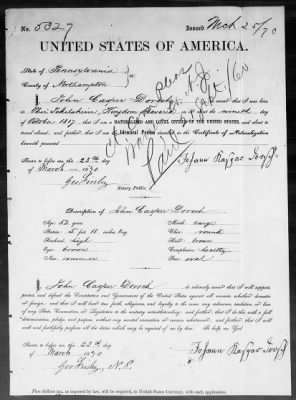 No. 5327 Issued Mch 25/70
UNITED STATES OF AMERICA.
State of Pennsylvania
County of Northampton
I, John Casper Dorsch
that I was born
Kingdom Bavaria
October 1817; that I am a NATURALIZED AND LOYAL CITIZEN OF THE UNITED STATES, and about to
travel abroad; and further, that I am the Identical Person described in the Certificate of Naturalization
herewith presented.
Sworn to before me, this 22nd day
of March 1870
Notary Public.
Paid
Description of John Casper Dorsch
Age: 52 years
Stature: 5 feet 11 inches, Eng.
Forehead: high
Eyes: brown
Nose: common
Mouth: large
Chin: round
Hair: brown
Complexion: healthy
Face: oval
I, John Casper Dorsch do solemnly swear that I will support,
protect, and defend the Constitution and Government of the United States against all enemies, whether domestic
or foreign; and that I will bear true faith, allegiance, and loyalty to the same, any ordinance, resolution, or law
of any State, Convention, or Legislature to the contrary notwithstanding; and further, that I do this with a full
determination, pledge, and purpose, without any mental reservation or evasion whatsoever; and further, that I will
well and faithfully perform all the duties which may be required of me by law. So help me God.
Sworn to before me, this 22nd day
of March 1870
N.P.
Five dollars tax, as imposed by law, will be required, in United States Currency, with each application.